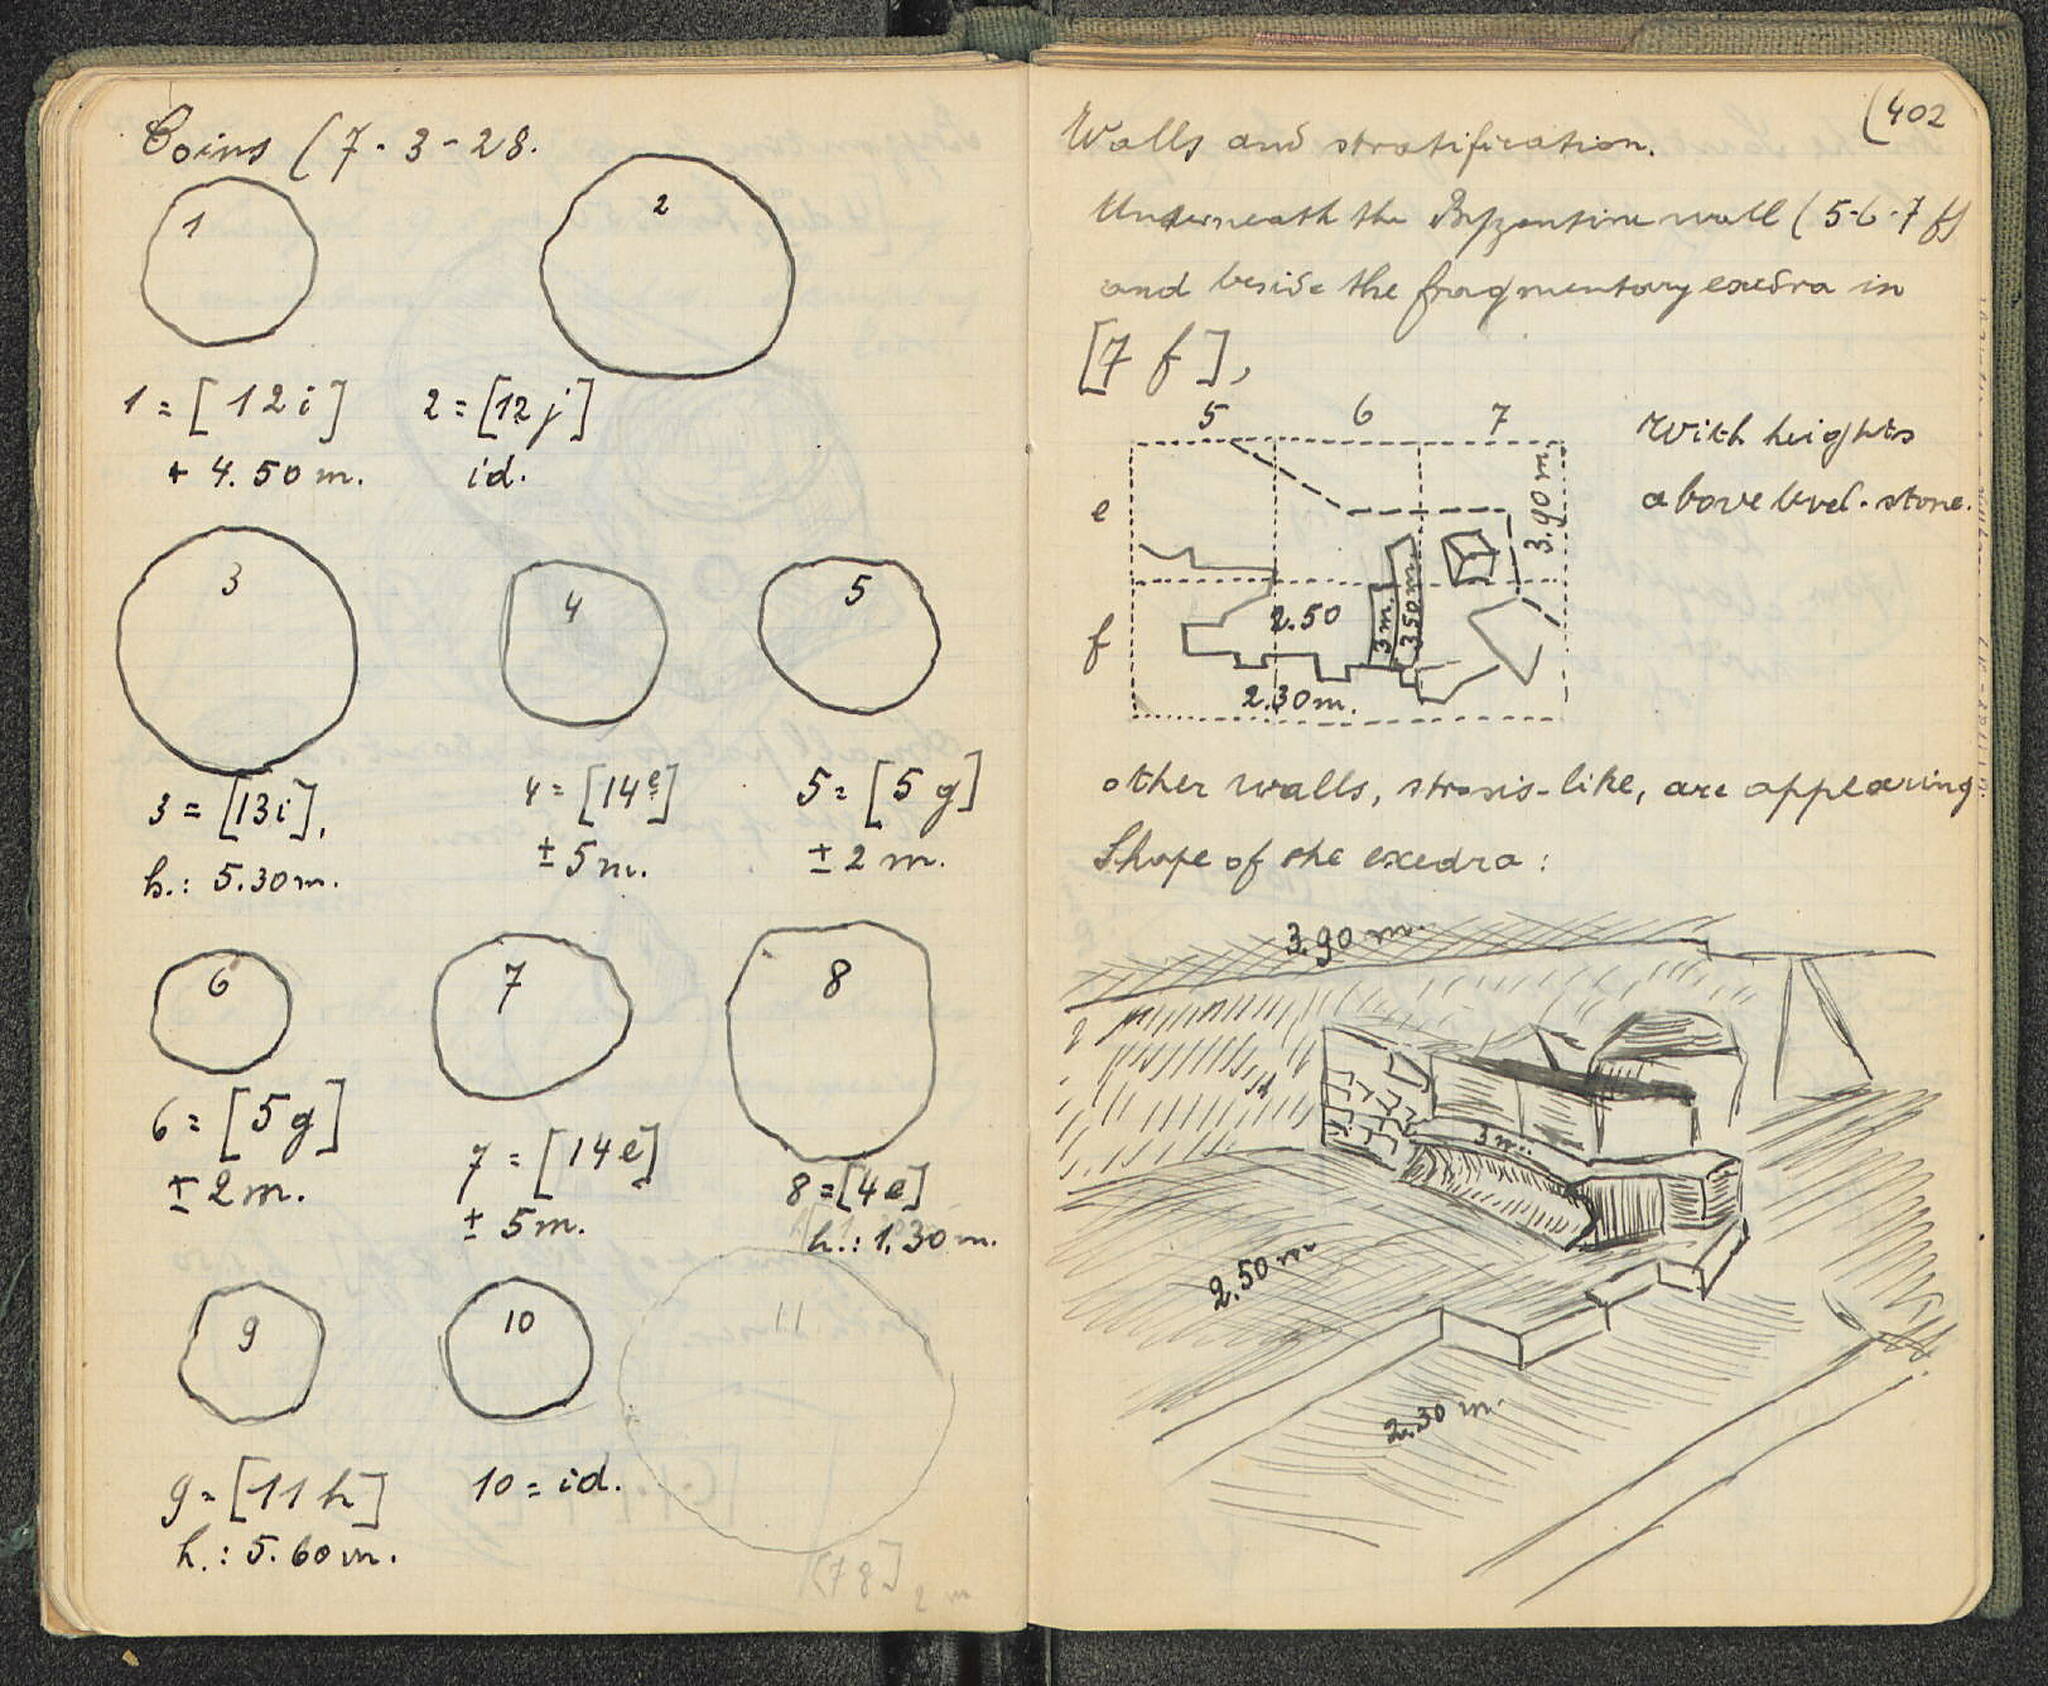 Coins (7-3-28.
1
2
1 = [12i]
+ 4.50 m.
2 = [12j]
id.
3
4
5
3 = [13i],
h.: 5.30 m.
4 = [14e]
± 5 m.
5 = [5g]
± 2 m.
6
7
8
6 = [5g]
± 2 m.
7 = [14e]
± 5 m.
8 = [4e]
h.: 1.30 m.
9
10
11
9 = [11h]
h.: 5.60 m.
10 = id.
2 m
(402
Walls and stratification.
Underneath the Byzantine wall (5-6-7 f)
and beside the fragmentary exedra in
[7 f],
5 6 7
e
f
3.90 m.
2.50
3 m.
3.50 m
2.30 m.
With heights
above level-stone.
other walls, stasis-like, are appearing.
Shape of the exedra:
3.90 m.
3 m.
2.50 m
2.30 m.